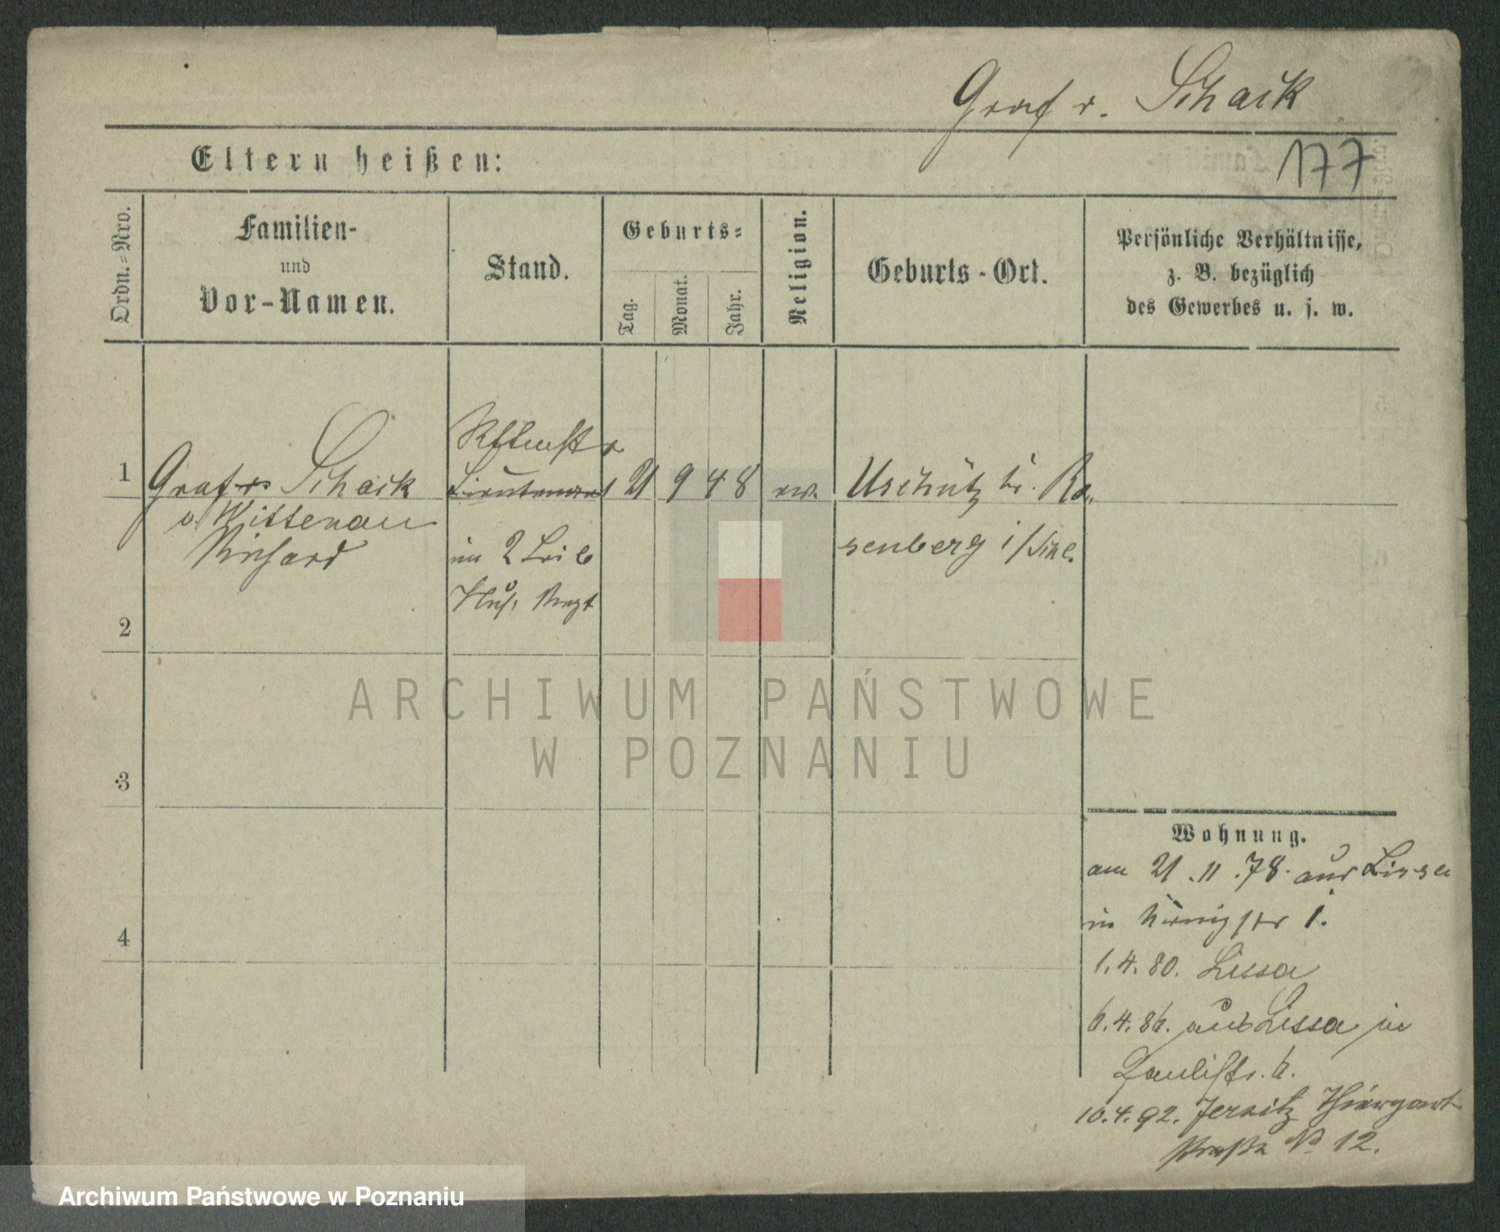 Graf v. Schack
177
Eltern heißen:
Ordn.=Nro.
Familien-
und
Vor-Namen.
Stand.
Geburts=
Tag.
Monat.
Jahr.
Religion.
Geburts-Ort.
Persönliche Verhältnisse,
z. B. bezüglich
des Gewerbes u. s. w.
1
Graf v Schack
v. Wittenau
Richard
Lieutenant
im 2 Leib
Hus. Regt
21 9 48
ev.
Uschütz Kr. Ro-
senberg i/Schl.
2
3
4
Wohnung.
am 21.11.78. aus Lissa
in Königstr 1.
1.4.80. Lissa
6.4.86. aus Lissa in
Paulistr. 6.
10.4.92. Jersitz Thiergart
straße No 12.
ARCHIWUM PAŃSTWOWE
W POZNANIU
Archiwum Państwowe w Poznaniu